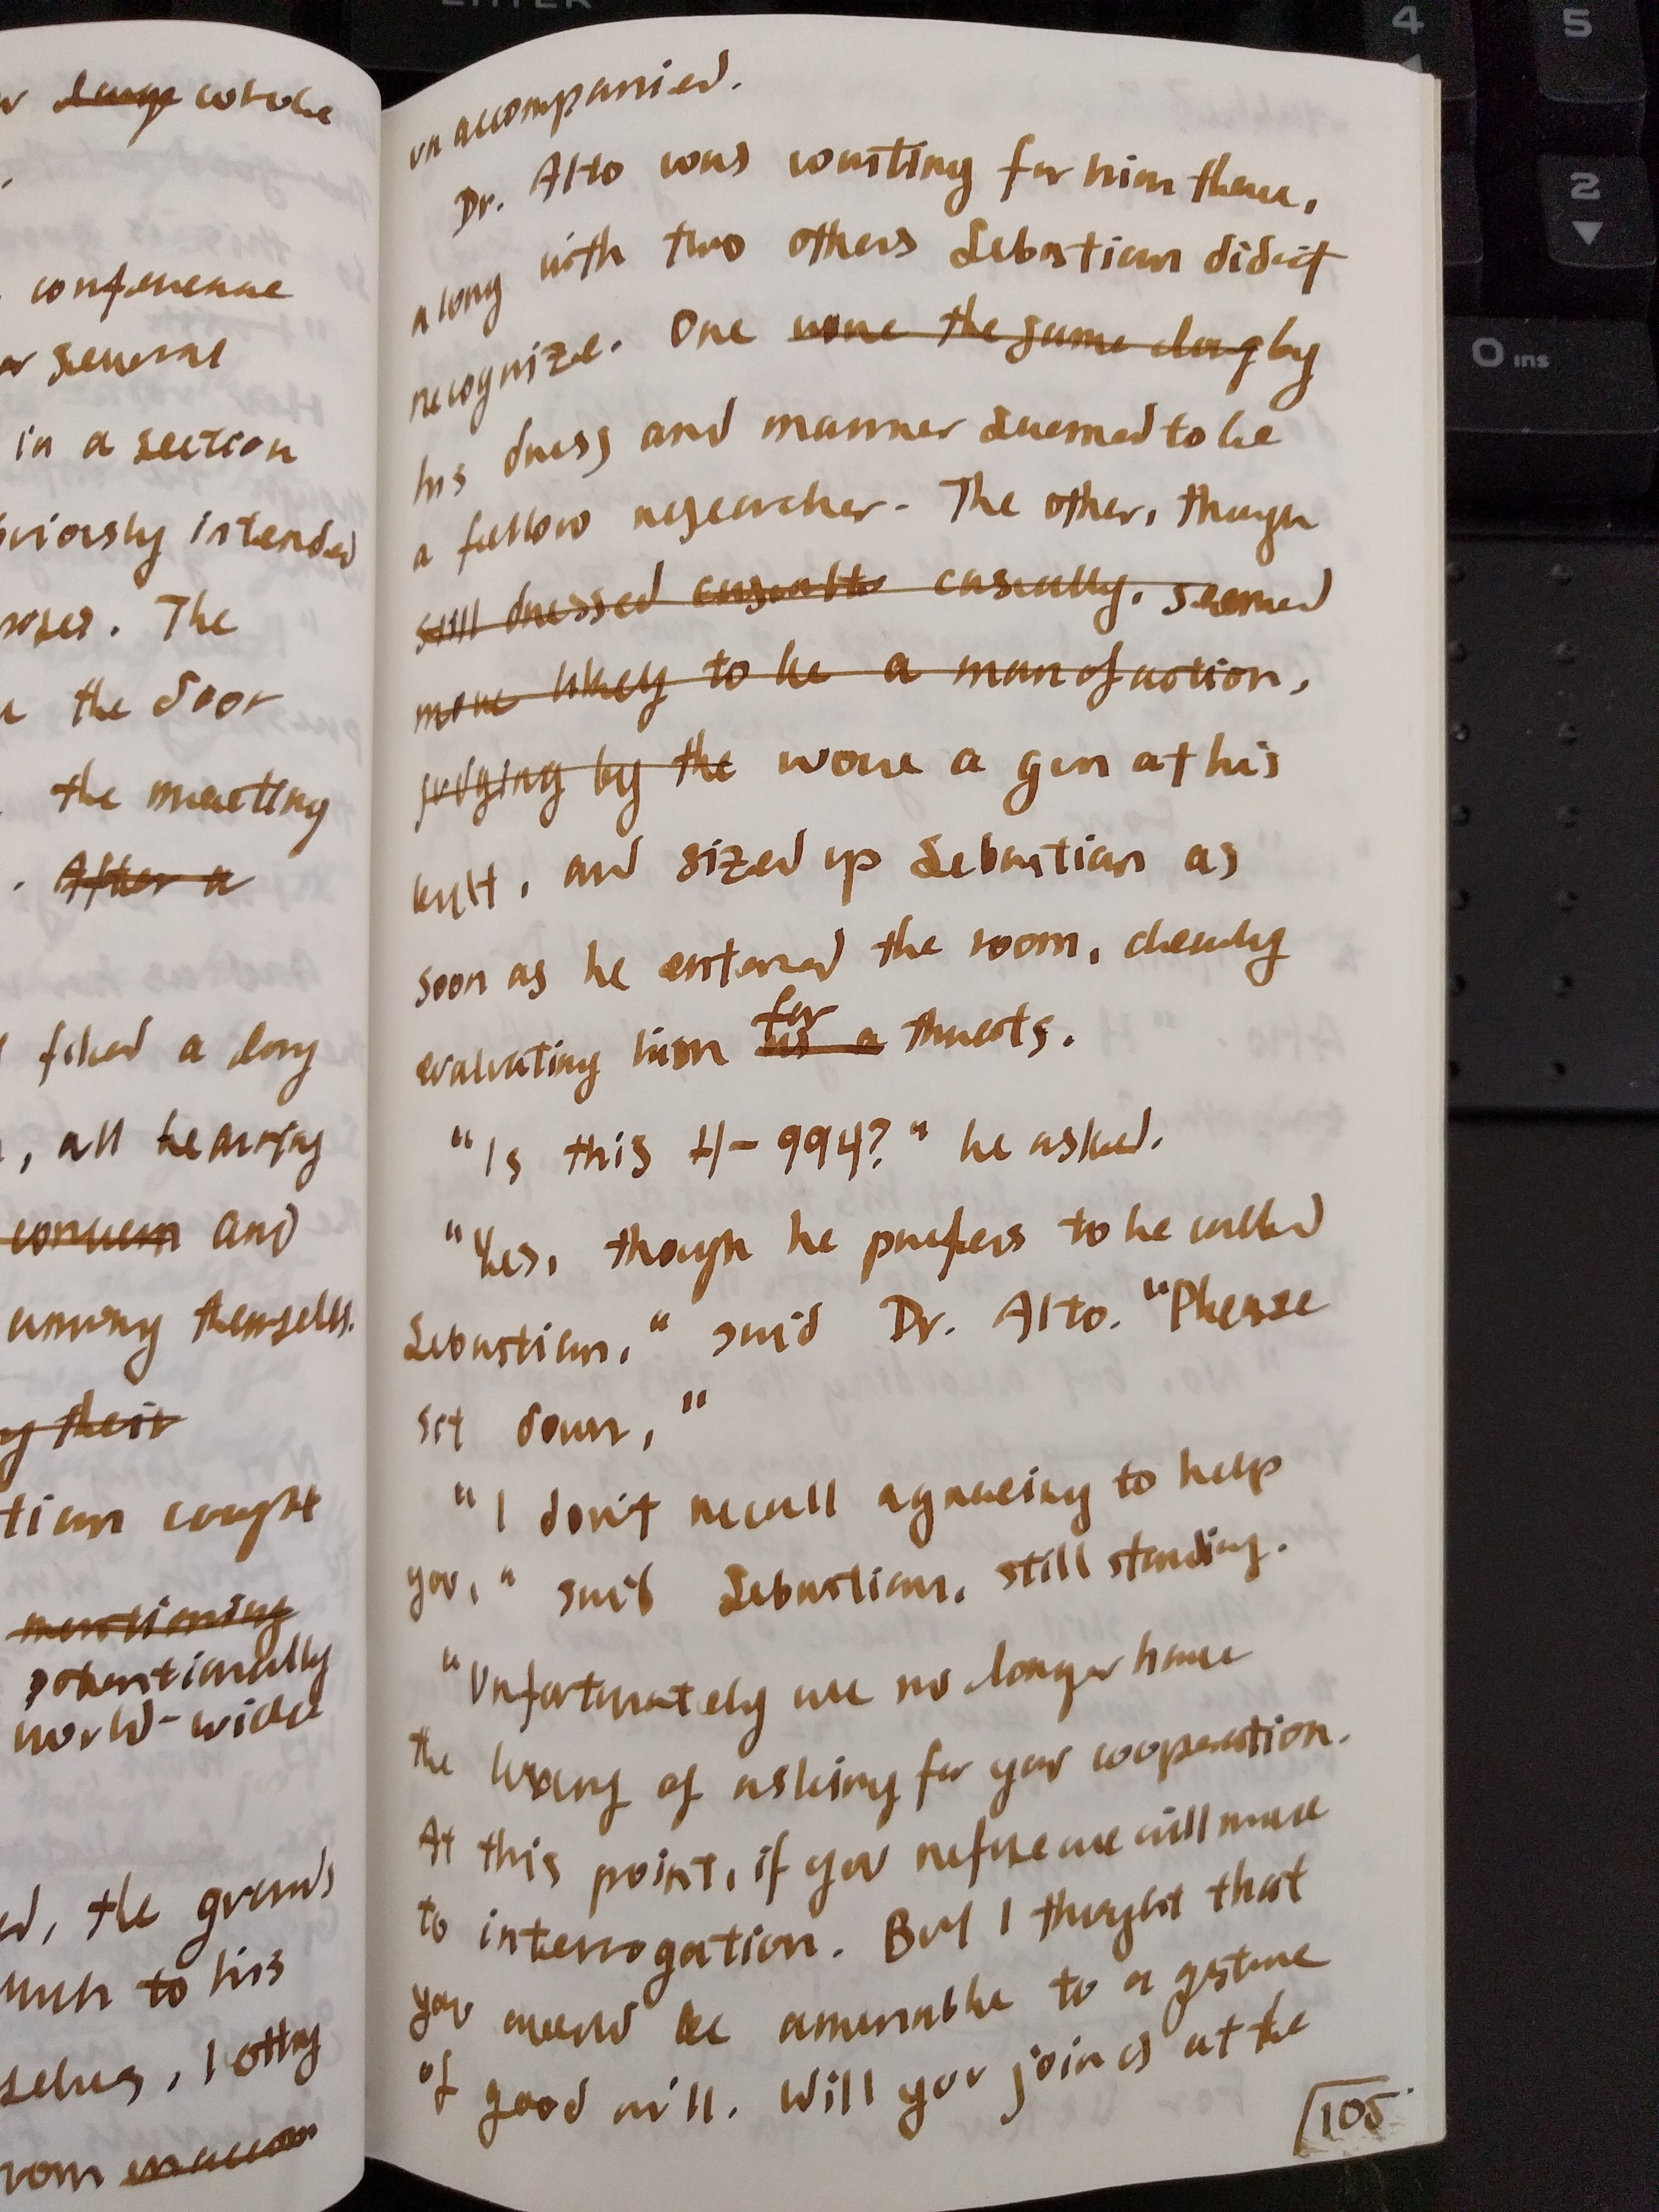 conference
several
in a section
intended
The
the door
the meeting
After a
filed a long
, all hearing
concern and
among themselves.
their
caught
mentioning
potentially
world-wide
, the grounds
to his
from
unaccompanied.
Dr. Alto was waiting for him there,
along with two others Sebastian didn't
recognize. One wore the same long by
his dress and manner seemed to be
a fellow researcher. The other, though
still dressed casually, seemed
more likely to be a man of action,
judging by the wore a gun at his
belt, and sized up Sebastian as
soon as he entered the room, clearly
for
evaluating him as a threats.
"Is this H-994?" he asked.
"Yes, though he prefers to be called
Sebastian," said Dr. Alto. "Please
sit down,"
"I don't recall agreeing to help
you," said Sebastian, still standing.
"Unfortunately we no longer have
the luxury of asking for your cooperation.
At this point, if you refuse we will move
to interrogation. But I thought that
you would be amenable to a gesture
of good will. Will you join us at the
105
ENTER
4
5
2
0 ins